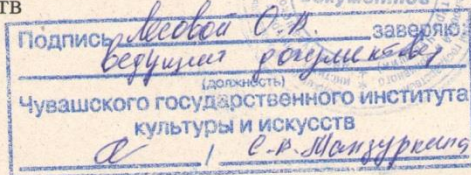 тв
Подпись Лесовой О.В. заверяю
ведущий документовед
(должность)
Чувашского государственного института
культуры и искусств
/